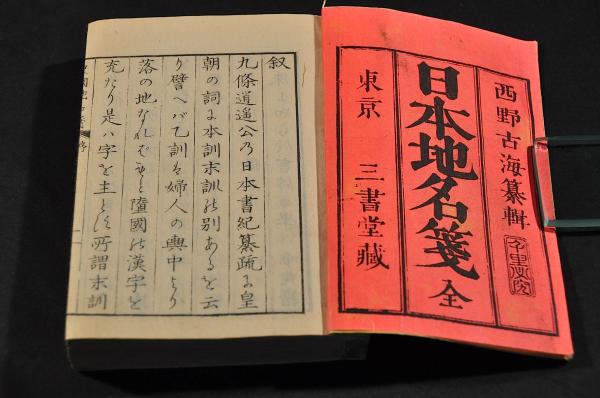 西野古海纂輯
日本地名箋 全
東京 三書堂藏
叙
九條道遥公乃日本書紀纂疏尓皇
朝の詞尓本訓末訓の別あるを云
り譬へバ乙訓は婦人の輿中より
落の地なれバ墮國の漢字を
充たり是ハ字を主とす所謂末訓
序